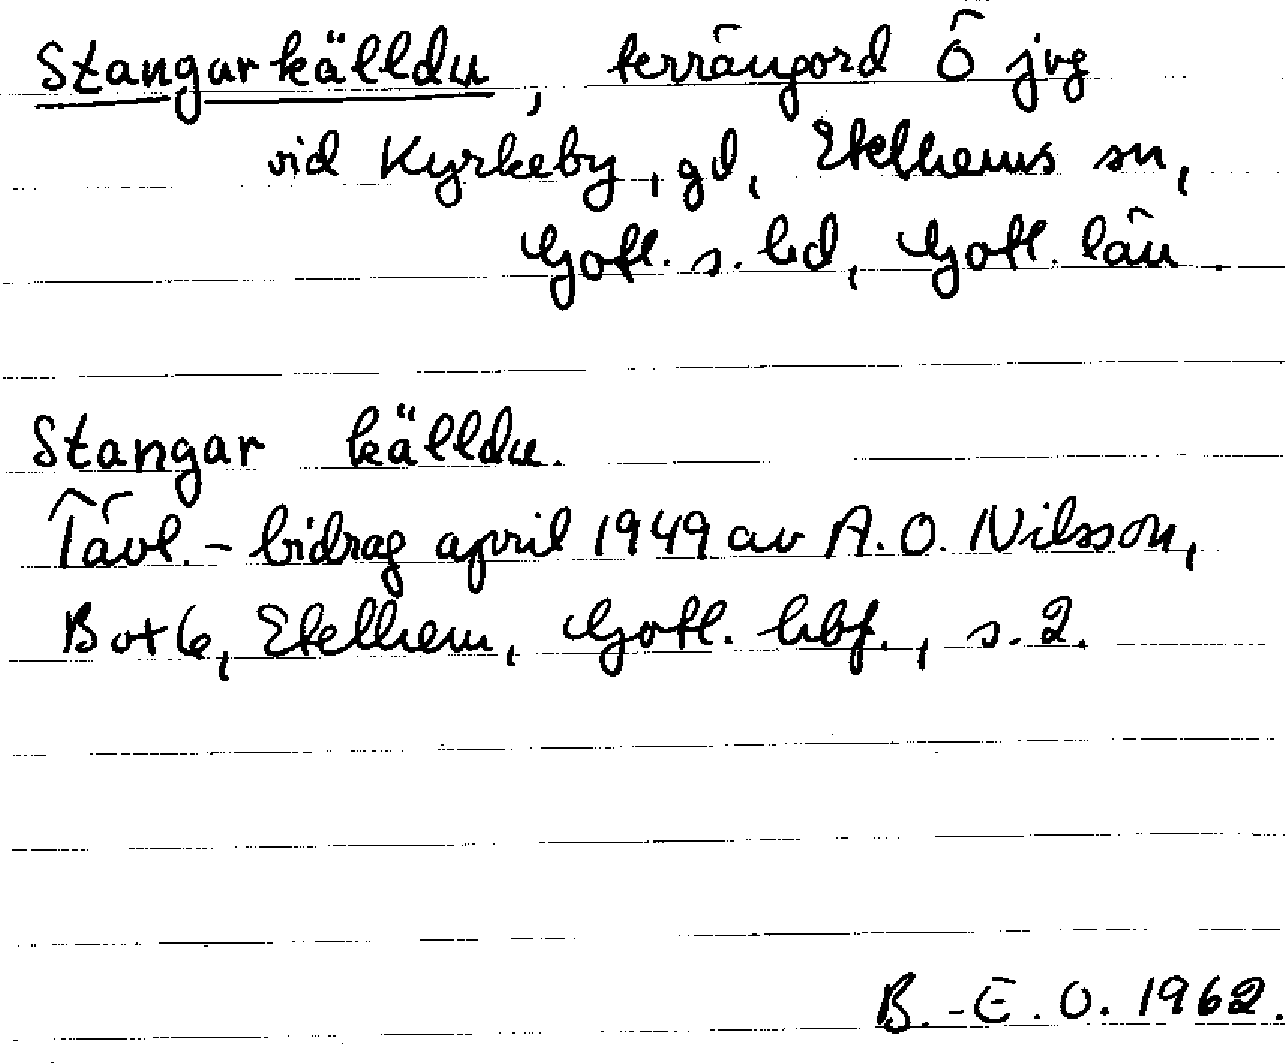 Stangarkälldu, terrängord Ö jvg
vid Kyrkeby, gd, Etelhems sn,
Gotl. s. hd, Gotl. län.
Stangar källdu.
Tävl.-bidrag april 1949 av A. O. Nilsson,
Box 6, Etelhem, Gotl. hbf., s. 2.
B.-E. O. 1962.